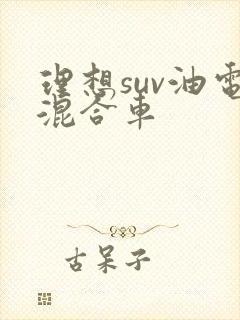 理想suv油電
混合車
古呆子